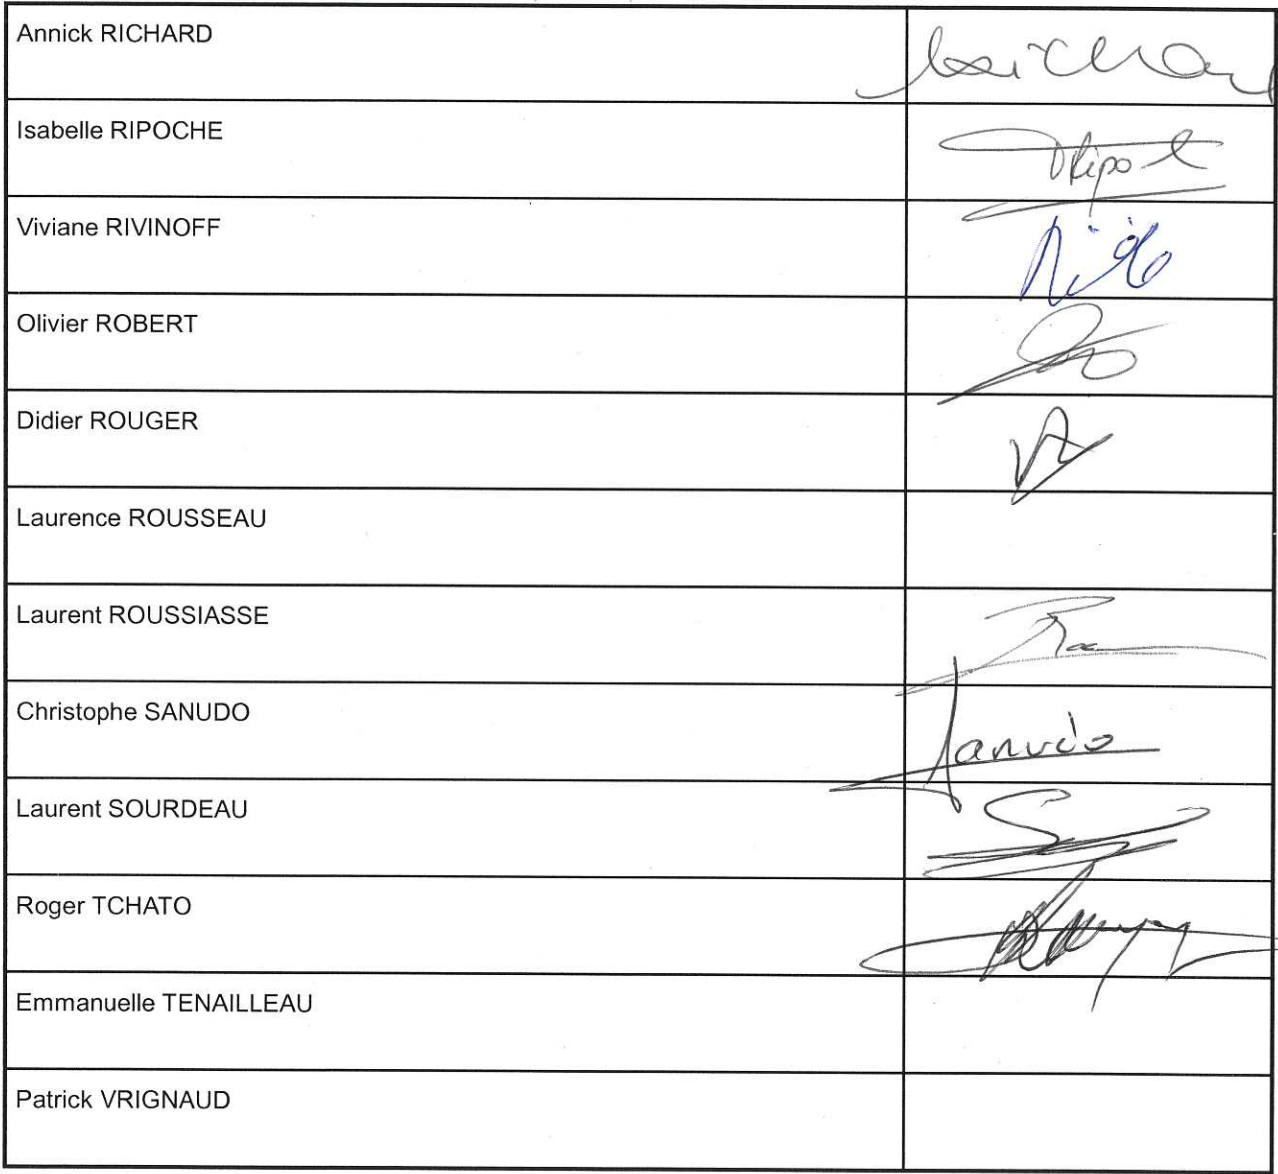 Annick RICHARD
Isabelle RIPOCHE
Viviane RIVINOFF
Olivier ROBERT
Didier ROUGER
Laurence ROUSSEAU
Laurent ROUSSIASSE
Christophe SANUDO
Sanudo
Laurent SOURDEAU
Roger TCHATO
Emmanuelle TENAILLEAU
Patrick VRIGNAUD